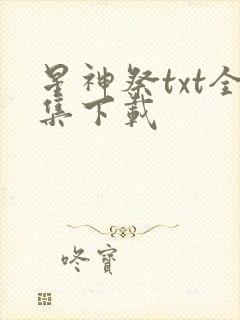 星神祭txt全
集下载
咚寶